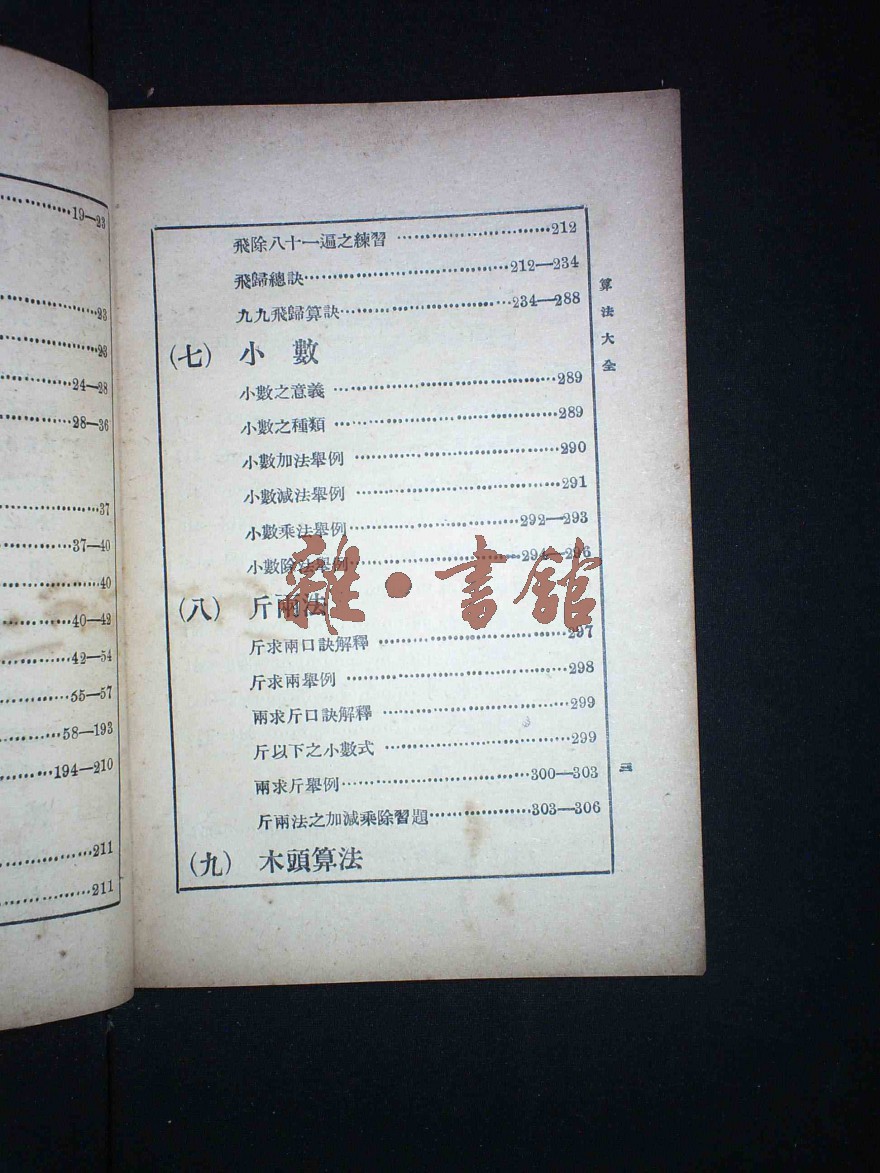 19—23
23
23
24—28
28—36
37
37—40
40
40—42
42—54
55—57
58—193
194—210
211
211
飛除八十一遍之練習 ································212
飛歸總訣································212—234
九九飛歸算訣································234—288
(七) 小 數
小數之意義 ································289
小數之種類 ································289
小數加法舉例 ································290
小數減法舉例 ································291
小數乘法舉例································292—293
小數除法舉例································294—296
(八) 斤兩法
斤求兩口訣解釋 ································297
斤求兩舉例 ································298
兩求斤口訣解釋 ································299
斤以下之小數式 ································299
兩求斤舉例································300—303
斤兩法之加減乘除習題····················303—306
(九) 木頭算法
算法大全
三
雜·書館